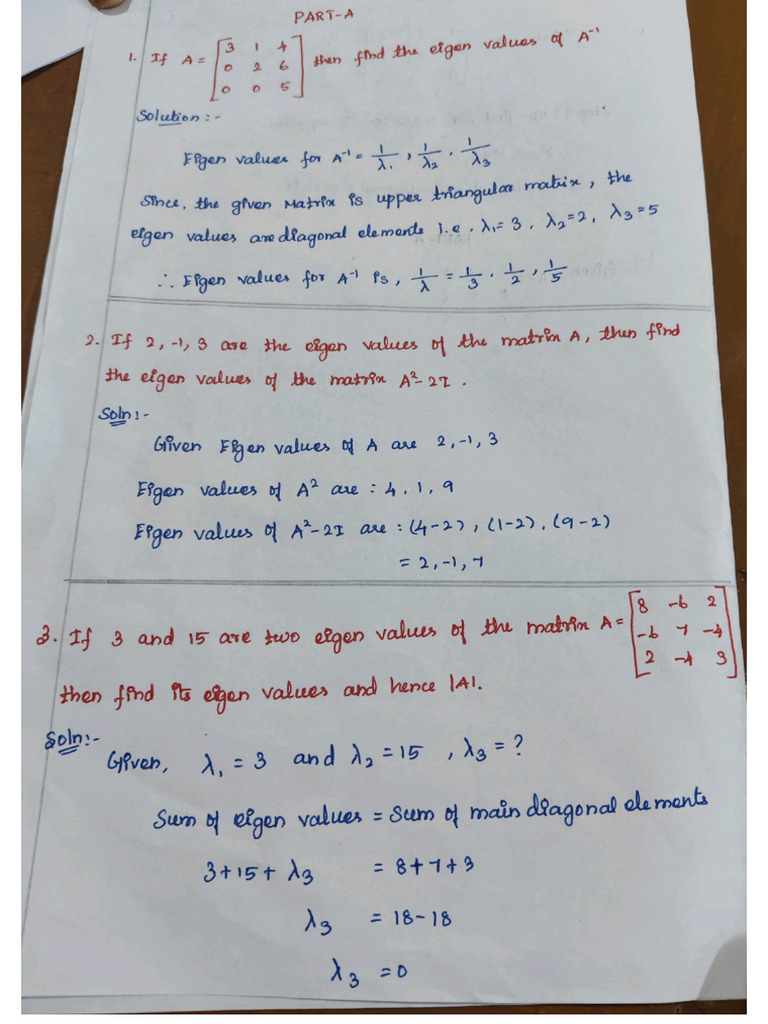 PART-A
1. If A = [3 1 4; 0 2 6; 0 0 5] then find the eigen values of A⁻¹
Solution :-
Eigen values for A⁻¹ = 1/λ₁, 1/λ₂, 1/λ₃
Since, the given Matrix is upper triangular matrix, the
eigen values are diagonal elements i.e. λ₁=3, λ₂=2, λ₃=5
∴ Eigen values for A⁻¹ is, 1/λ = 1/3, 1/2, 1/5
2. If 2, -1, 3 are the eigen values of the matrix A, then find
the eigen values of the matrix A²-2I.
Soln:-
Given Eigen values of A are 2, -1, 3
Eigen values of A² are : 4, 1, 9
Eigen values of A²-2I are : (4-2), (1-2), (9-2)
= 2, -1, 7
3. If 3 and 15 are two eigen values of the matrix A = [8 -6 2; -6 7 -4; 2 -4 3]
then find its eigen values and hence |A|.
Soln:-
Given, λ₁ = 3 and λ₂ = 15, λ₃ = ?
Sum of eigen values = Sum of main diagonal elements
3+15+λ₃ = 8+7+3
λ₃ = 18-18
λ₃ = 0